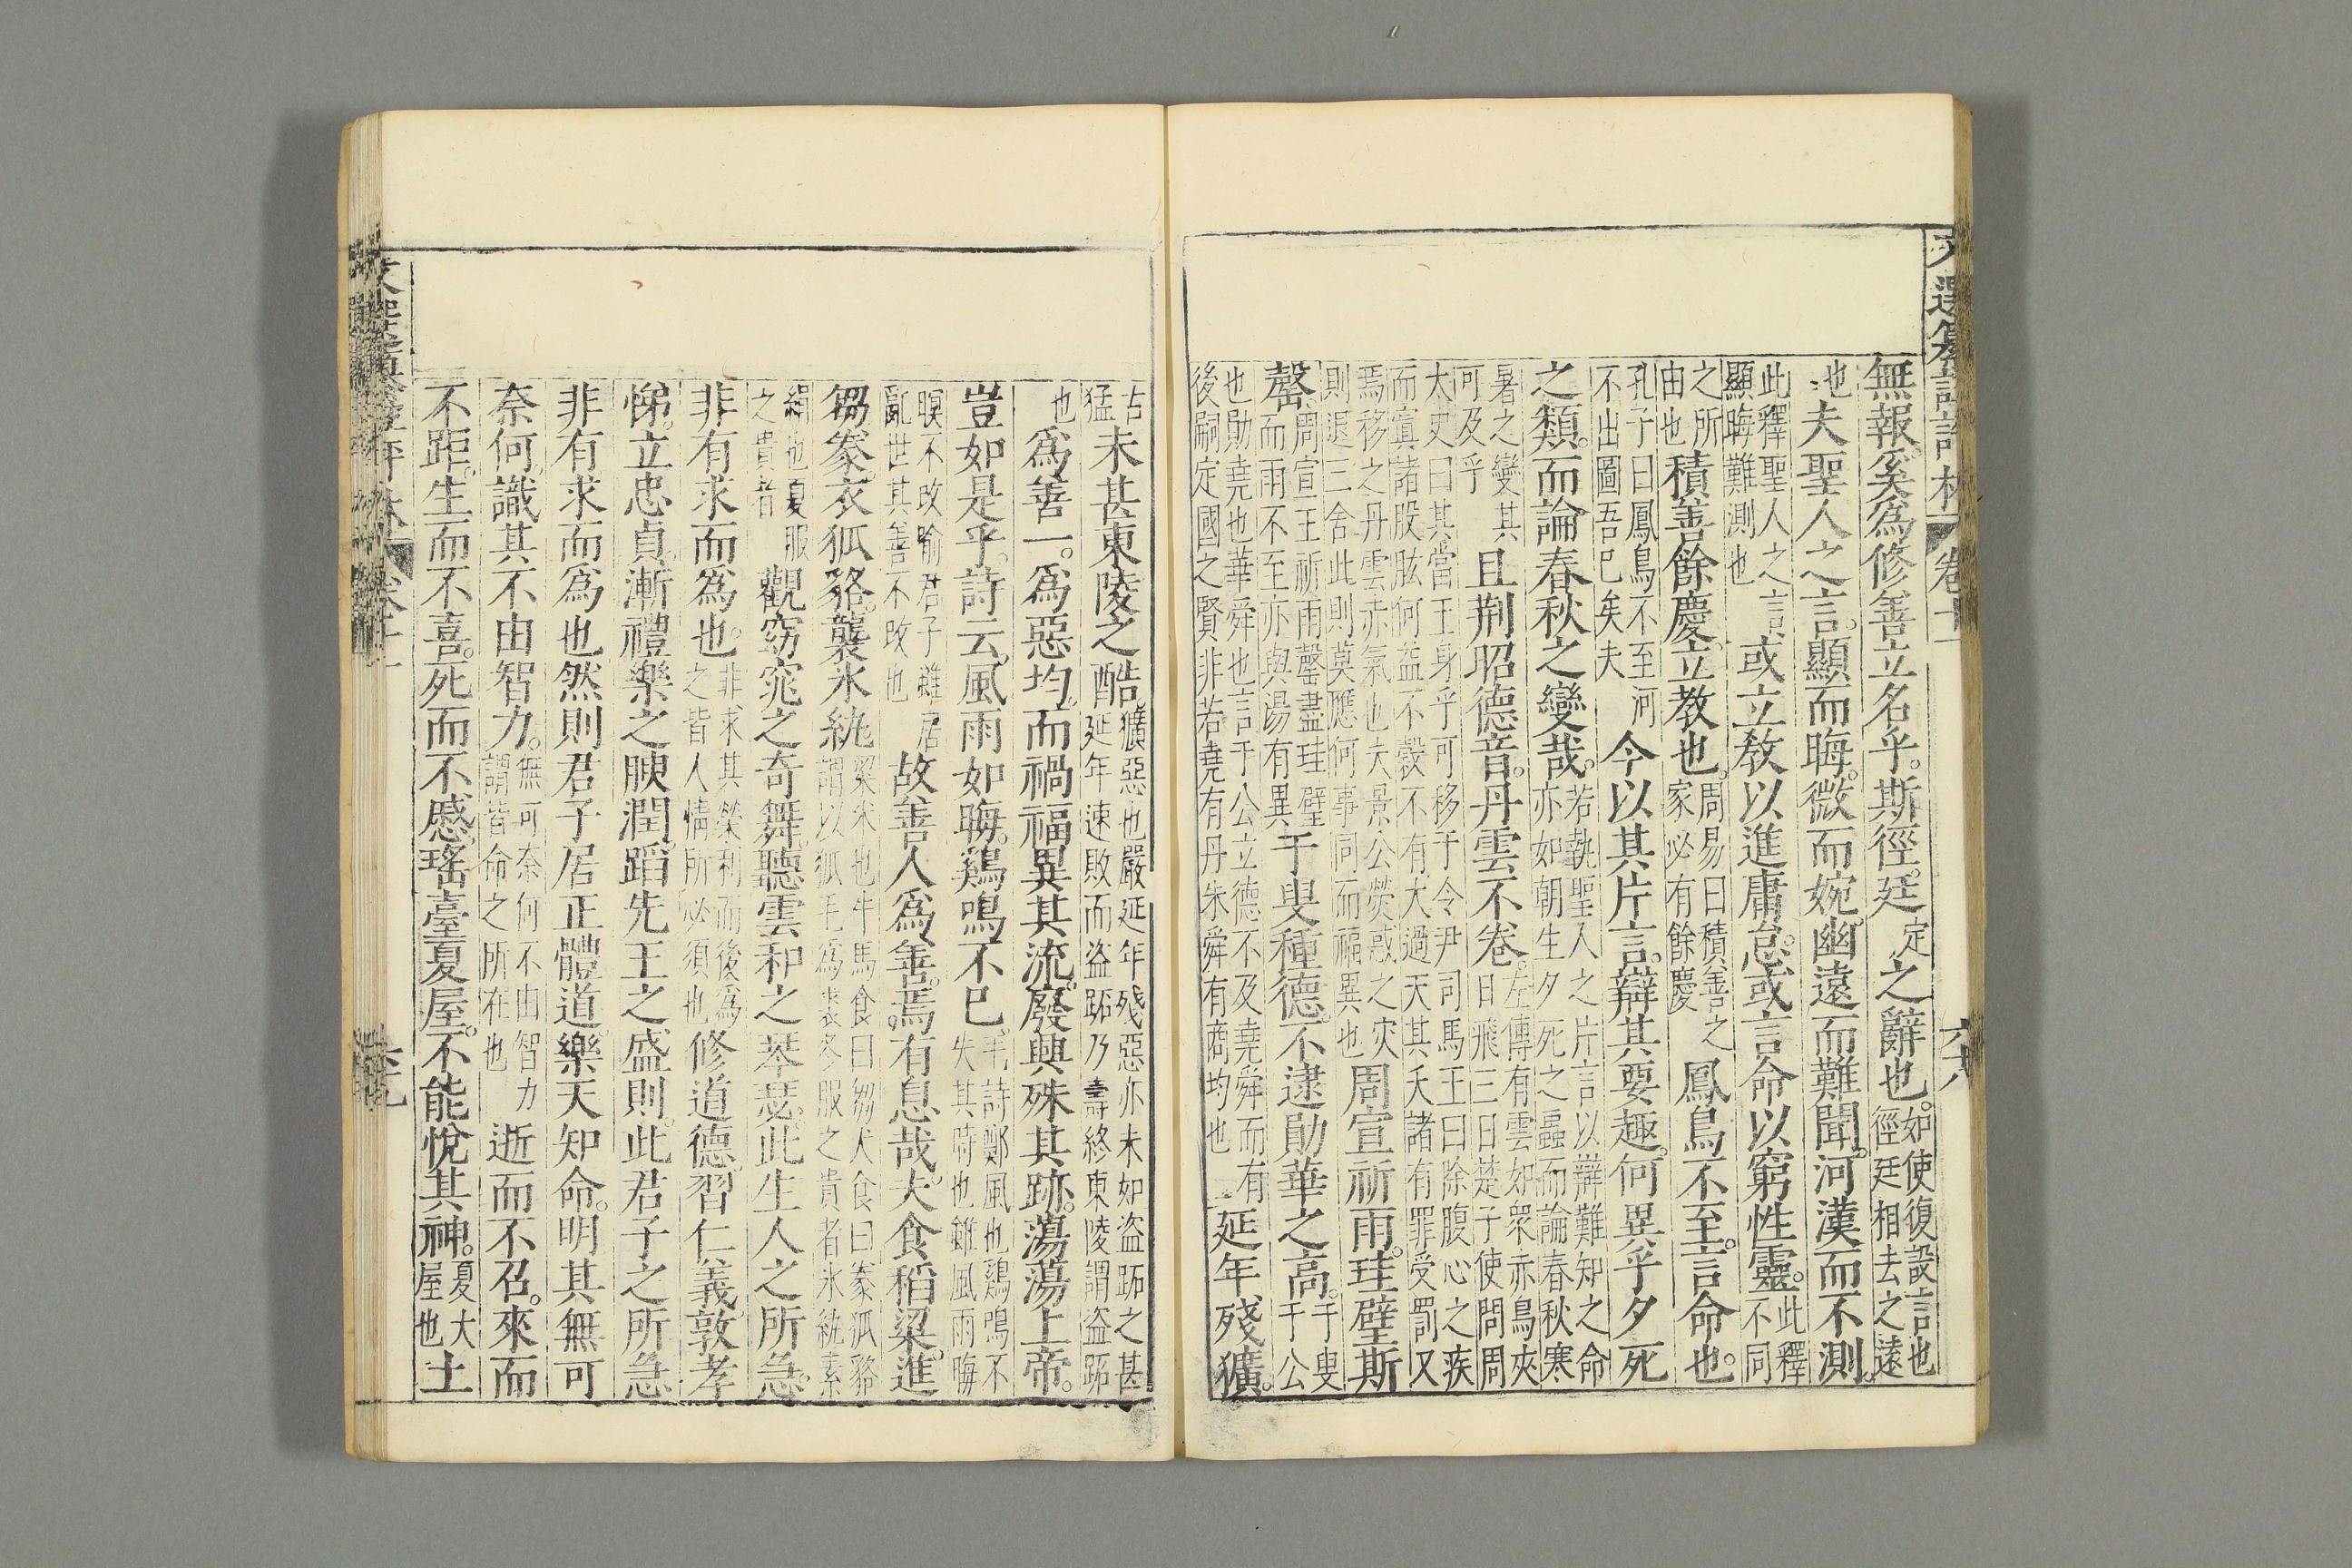 無報奚爲修善立名乎斯徑廷定之辭也如使復設言也徑廷相去之遠
也夫聖人之言顯而晦微而婉幽遠而難聞河漢而不測
此釋聖人之言顯晦難測也或立敎以進庸怠或言命以窮性靈此釋不同
之所由也積善餘慶立教也周易曰積善之家必有餘慶鳳鳥不至言命也
孔子曰鳳鳥不至河不出圖吾巳矣夫今以其片言辯其要趣何異乎夕死
之類而論春秋之變哉若執聖人之片言以辯難知之命亦如朝生夕死之蟲而論春秋寒
暑之變其可及乎且荆昭德音丹雲不卷左傳有雲如衆赤鳥夾日飛三日楚子使問周
太史曰其當王身乎可移于令尹司馬王曰除腹心之疾而寘諸股肱何益不穀不有大過天其夭諸有罪受罰又
焉移之丹雲赤氣也夫景公熒惑之灾則退三舍此則莫應何事同而福異也周宣祈雨珪璧斯
罄周宣王祈雨罄盡珪璧而雨不至亦與湯有異于叟種德不逮勛華之高于叟于公
也勛堯也華舜也言于公立德不及堯舜而有後嗣定國之賢非若堯有丹朱舜有商均也延年殘獷
猛未甚東陵之酷獷惡也嚴延年殘惡亦未如盜跖之甚延年速敗而盜跖乃壽終東陵謂盜跖
也爲善一爲惡均而禍福異其流廢興殊其跡蕩蕩上帝
豈如是乎詩云風雨如晦鷄鳴不巳毛詩鄭風也鷄鳴不失其時也雖風雨晦
暝不改喻君子雖居亂世其善不改也故善人爲善焉有息哉夫食稻粱進
芻豢衣狐貉襲氷紈粱米也牛馬食曰芻犬食曰豢狐貉謂以狐毛爲裘冬服之貴者氷紈素
絹也夏服之貴者觀窈窕之奇舞聽雲和之琴瑟此生人之所急
非有求而爲也非求其榮利而後爲之皆人情所必須也修道德習仁義敦孝
悌立忠貞漸禮樂之腴潤蹈先王之盛則此君子之所急
非有求而爲也然則君子居正體道樂天知命明其無可
奈何識其不由智力無可奈何不由智力謂皆命之所在也逝而不召來而
不距生而不喜死而不慼瑤臺夏屋不能悅其神夏大屋也土